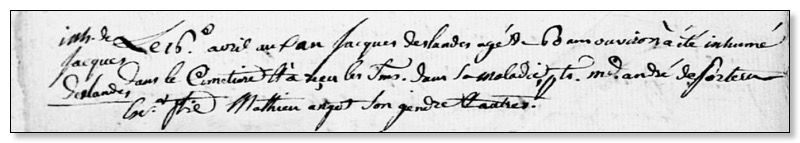 inh. de
Jacques
deslandes
Le 16.e avril au d. an Jacques deslandes agé de 68 ans ou viron à été inhumé
dans le Cimetiere et à reçu les Sms. dans sa maladie, pts. me. andré
Mathieu angot son gendre et autres.